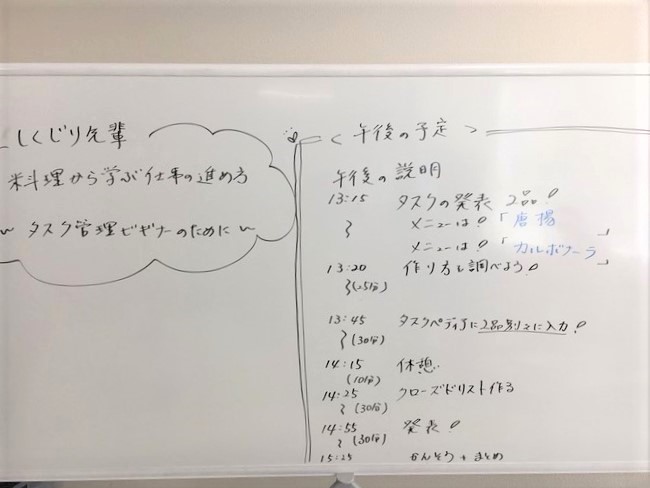 しくじり先輩
料理から学ぶ仕事の進め方
〜 タスク管理ビギナーのために 〜
< 午後の予定 >
午後の説明
13:15 タスクの発表 2品!
メニューは!「唐揚」
メニューは!「カルボナーラ」
13:20 作り方を調べよう!
(25分)
13:45 タスクペディアに2品別々に入力!
(30分)
14:15 休憩
(10分)
14:25 クローズドリスト作る
(30分)
14:55 発表!
(30分)
15:25 かんそう + まとめ